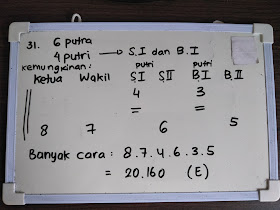 31. 6 putra
4 putri → S.I dan B.I
kemungkinan:
putri putri
Ketua Wakil S.I S.II B.I B.II
4 3
= =
8 7 6 5
Banyak cara : 8.7.4.6.3.5
= 20.160 (E)